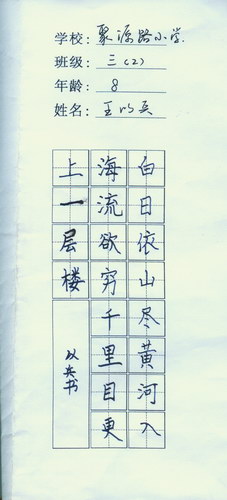 学校：聚源路小学
班级：三（2）
年龄：8
姓名：王以
白日依山尽黄河入
海流欲穷千里目更
上一层楼
以 书